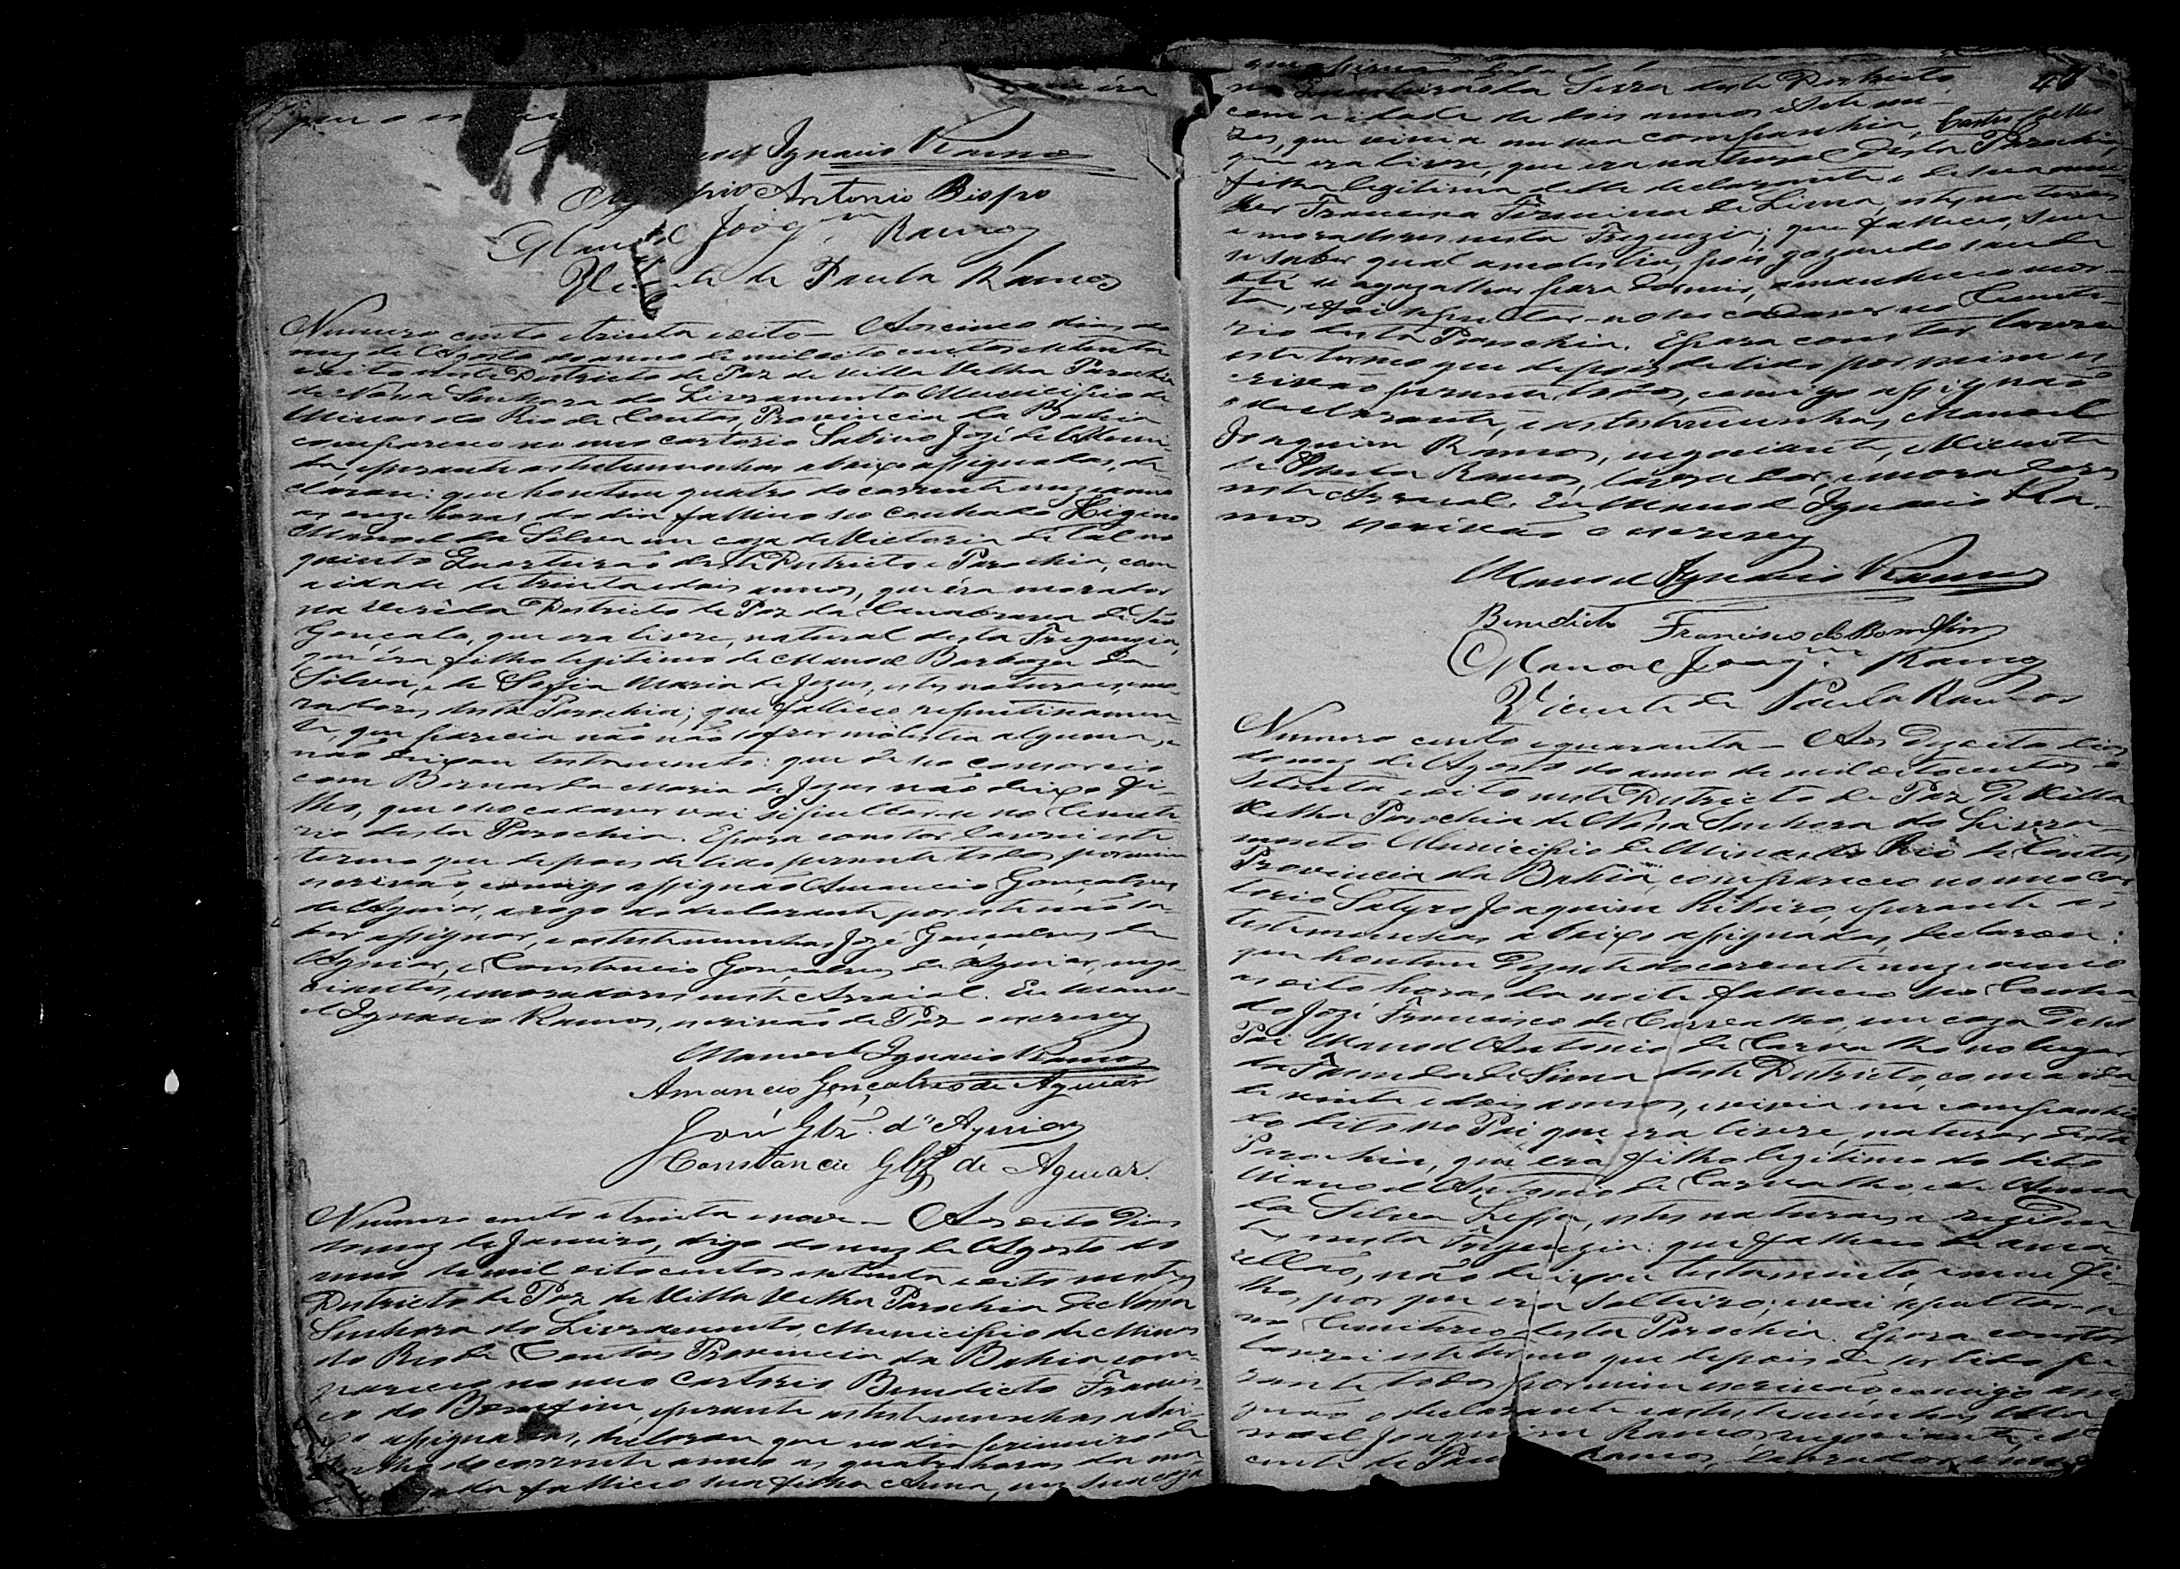 que o es
Ignacio Ramos
Antonio Bispo
Manoel Joaqm Ramos
Vicente de Paula Ramos
Numero cento e trinta e oito — Aos cinco dias do
mez de Agosto do anno de mil oito centos e setenta
e oito neste Districto de Paz de Villa Velha Parochia
de Nossa Senhora do Livramento Municipio de
Minas do Rio de Contas, Provincia da Bahia
compareceo no meo cartorio Sabino José de Almei-
da, e perante as testemunhas abaixo assignadas, de-
clarou: que hontem quatro do corrente mez e anno
as onze horas do dia falleceo seo cunhado Higino
Manoel da Silva em caza de Victoria de tal no
quinto Quarteirão deste Districto e Parochia, com
a idade de trinta e dois annos, que éra morador
na Districto de Paz da Canabrava de São
Gonçalo, que era livre, natural desta Freguezia,
que éra filho legitimo de Manoel Barboza da
Silva, e de Maria de Jezus, estes naturaes, e mo-
radores desta Parochia; que falleceo repentinamen-
te, que parecia não não sofrer molestia alguma, e
não deixou testamento: que de seo consorcio
com Bernarda Maria de Jezus não deixou fi-
lho, que o seo cadaver vai sepultar-se no Cemite-
rio desta Parochia. E para constar lavrei este
termo que depois de lido perante todos por mim
escrivão, comigo assignão Amancio Gonçalves
de Aguiar, a rogo do declarante por este não sa-
ber assignar, e as testemunhas José Gonçalves de
Aguiar, e Constancio Gonçalves de Aguiar, nego-
ciantes, e moradores neste Arraial. Eu Mano-
el Ignacio Ramos, escrivão de Paz o escrevy
Manoel Ignacio Ramos
Amancio Gonçalves de Aguiar
José Glz. d'Aguiar
Constancio Glz de Aguiar.
Numero cento e trinta e nove — Aos oito dias
do mez de Janeiro, digo do mez de Agosto do
anno de mil oito centos e setenta e oito neste
Districto de Paz de Villa Velha Parochia de Nossa
Senhora do Livramento, Municipio de Minas
do Rio de Contas Provincia da Bahia com-
pareceo no meo Cartorio Benedicto Francis-
co do Bomfim, e perante as testemunhas abai-
xo assignadas, declarou que no dia primeiro de
do corrente anno as quatro horas da ma-
falleceo sua filha Anna, em sua caza
da Serra deste Districto
com a idade de dois annos e sete me-
zes, que vivia em sua companhia,
que era livre, que era natural desta Parochia
filha legitima delle declarante e de sua mu-
lher Francisca Firmina de Lima, estes naturaes
e moradores nesta Freguezia; que falleceo, sem
se saber qual a molestia, pois gozando saude
até se agazalhar para dormir, amanheceo mor-
ta, e foi sepultar-se o seo cadaver no Cemite-
rio desta Parochia. E para constar lavrei
este termo que depois de lido por mim es-
crivão perante todos, comigo assignão
o declarante, e as testemunhas Manoel
Joaquim Ramos, negociante, e Vicente
de Paula Ramos, lavrador, e moradores
neste Arraial. Eu Manoel Ignacio Ra-
mos escrivão o escrevy
Manoel Ignacio Ramos
Benedicto Francisco do Bomfim
Manoel Joaqm Ramos
Vicente de Paula Ramos
Numero cento e quarenta — Aos dezoito dias
do mez de Agosto do anno de mil oitocentos e
setenta e oito neste Districto de Paz de Villa
Velha Parochia de Nossa Senhora do Livra-
mento Municipio de Minas do Rio de Contas
Provincia da Bahia, compareceo no meo car-
torio Satyro Joaquim Ribeiro, e perante as
testemunhas abaixo assignadas, declarou:
que hontem dezesete do corrente mez e anno
as oito horas da noite falleceo seo Cunha-
do José Francisco de Carvalho, em caza de seo
Pai Manoel Antonio de Carvalho no lugar
da Fazenda de Sima deste Districto, com a ida-
de vinte e dois annos, e vivia em companhia
do dito seo Pai que era livre, natural desta
Parochia, que era filho legitimo do dito
Manoel Antonio de Carvalho, e de Anna
da Silva Lessa, estes naturaes e reziden-
tes nesta Freguezia: que falleceo de
não deixou testamento, e nem fi-
lho, por que era solteiro; e vai sepultar-se
no Cemiterio desta Parochia. E para constar
lavrei este termo que depois de ser lido pe-
rante todos por mim escrivão comigo assi-
gnão o declarante e as testemunhas Ma-
noel Joaquim Ramos negociante, e Vi-
cente de Paula Ramos, lavrador e